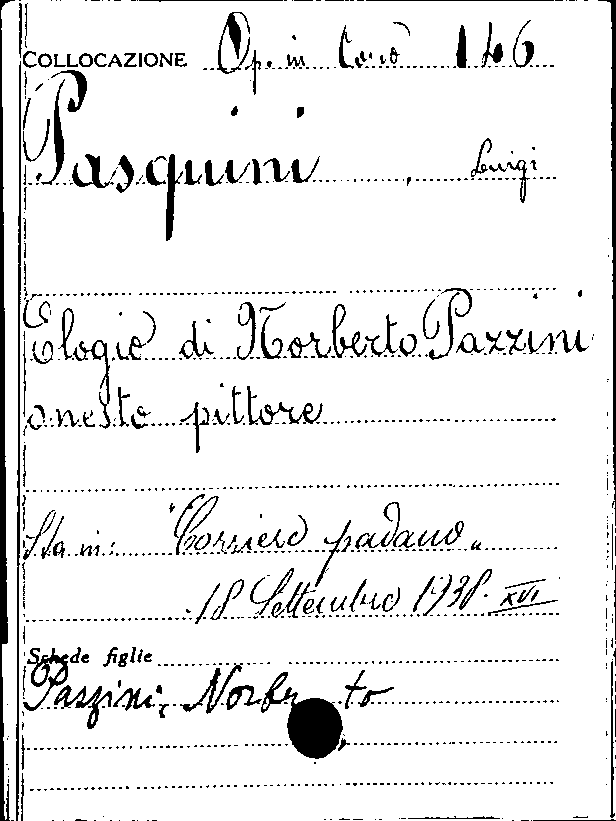 COLLOCAZIONE Op. in Caso 146
Pasquini, Luigi
Elogio di Norberto Pazzini
onesto pittore
Sta in: "Corriere padano"
18 Settembre 1938. XVI
Schede figlie
Pazzini, Norberto